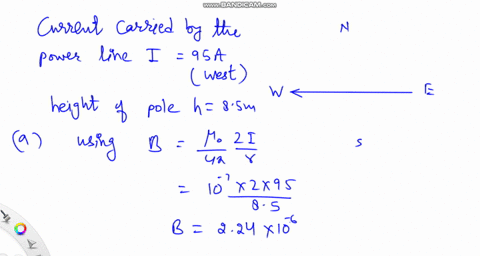 WWW.BANDICAM.COM
Current carried by the
power line I = 95A
(west)
height of pole h = 8.5m
(a) using B = μ₀/4π 2I/r
= 10⁻⁷ × 2 × 95 / 8.5
B = 2.24 × 10⁻⁶
N
W E
S